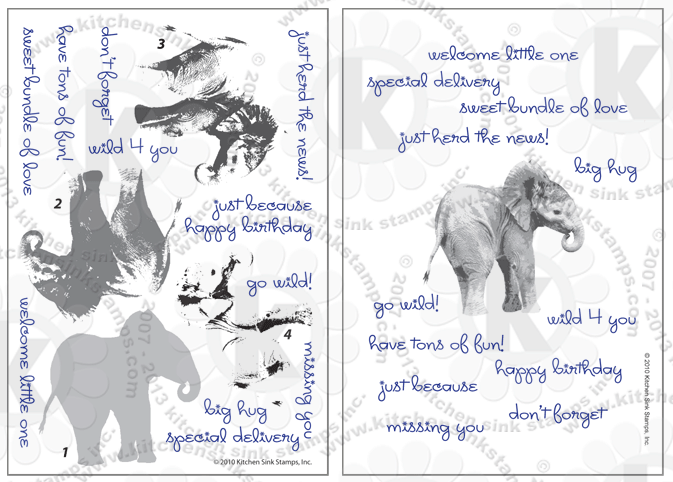 sweet bundle of love
have tons of fun!
don't forget
3
just herd the news!
wild 4 you
2
just because
happy birthday
go wild!
4
welcome little one
missing you
big hug
special delivery
1
© 2010 Kitchen Sink Stamps, Inc.
welcome little one
special delivery
sweet bundle of love
just herd the news!
big hug
go wild!
wild 4 you
have tons of fun!
happy birthday
just because
don't forget
missing you
© 2010 Kitchen Sink Stamps, Inc.
© 2007 - 2013 kitchen sink stamps, inc.
www.kitchensinkstamps.com